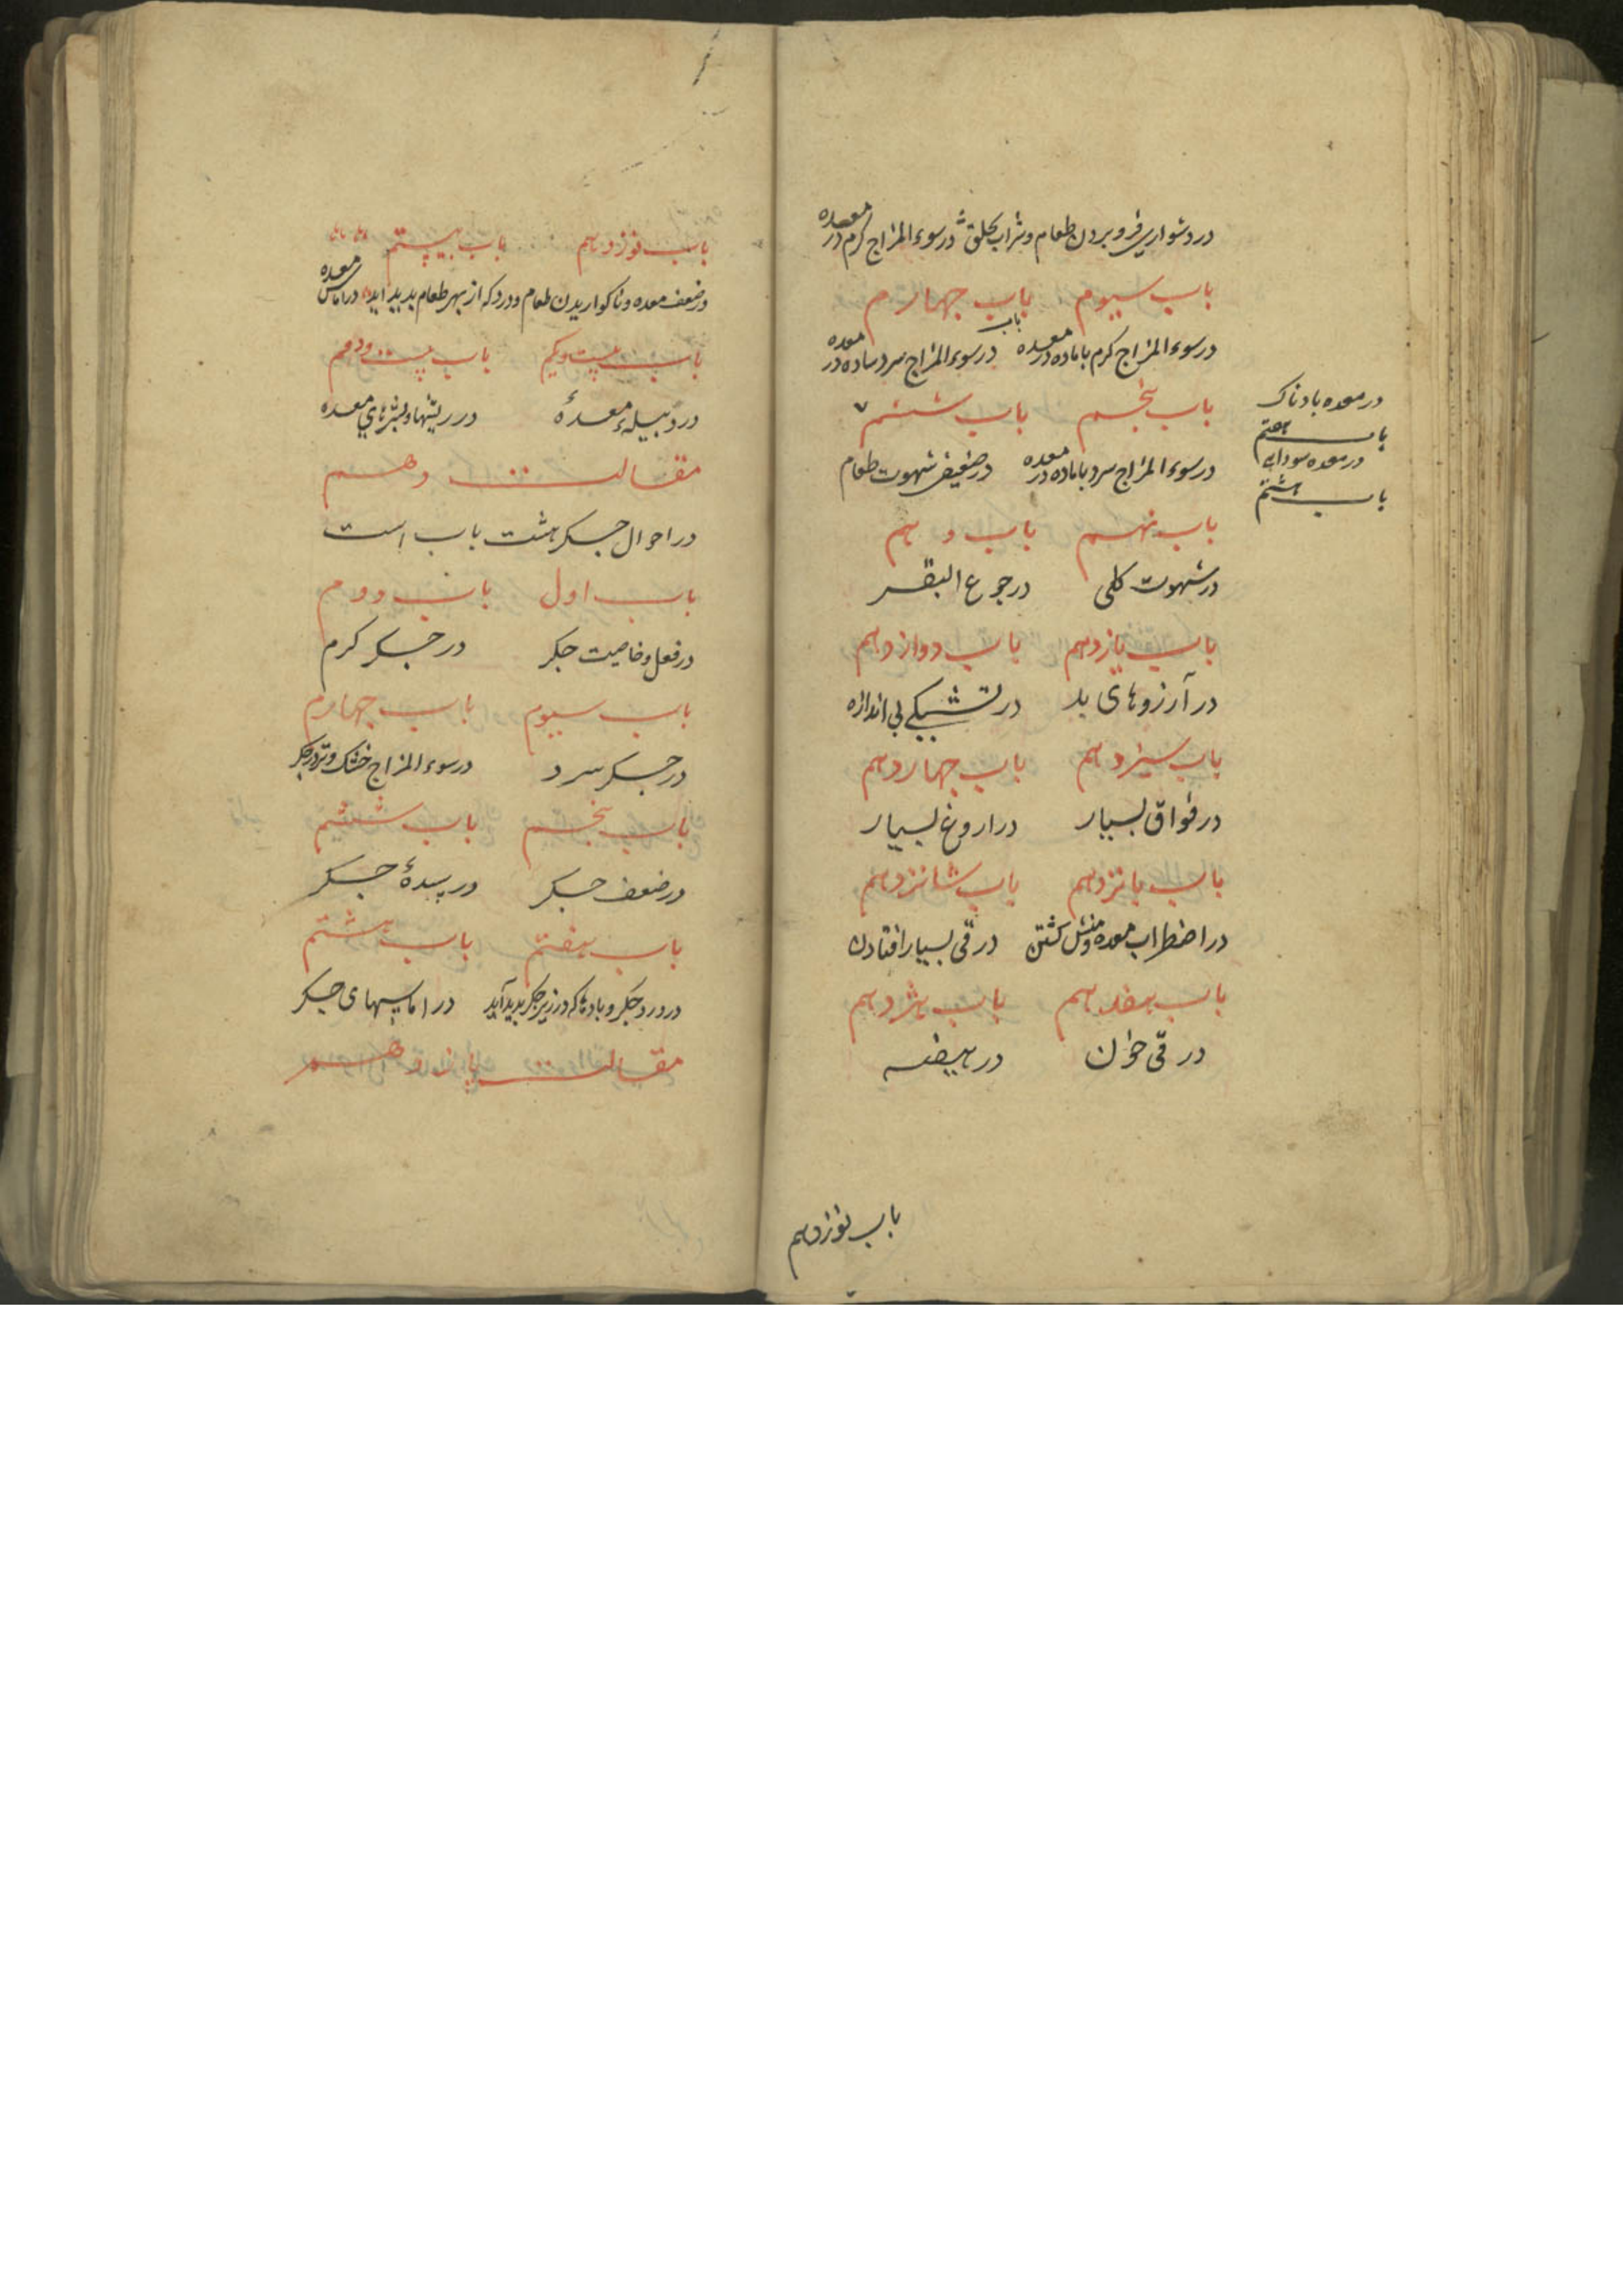 در دشواری فرو بردن طعام و شراب بحلق در سوء المزاج کرم در معده
باب سیوم باب چهارم
در سوء المزاج کرم با ماده در معده باب در سوء المزاج سرد ساده در معده
باب پنجم باب ششم ۷
در سوء المزاج سرد با ماده در معده در ضعیفی شهوت طعام
باب نهم باب دهم
در شهوت کلبی در جوع البقر
باب یازدهم باب دوازدهم
در آرزوهای بد در تشنکی بی اندازه
باب سیزدهم باب چهاردهم
در فواق بسیار در اروغ بسیار
باب پانزدهم باب شانزدهم
در اضطراب معده و منش کشتن در قی بسیار افتادن
باب هفدهم باب هژدهم
در قی خون در هیضه
باب نوزدهم
در معده بادناک
باب هفتم
در معده سودایی
باب هشتم
باب نوزدهم باب بیستم
در ضعف معده و ناکواریدن طعام و درد که از بهر طعام پدید اید در اماس معده
باب بیست و یکم باب بیست و دوم
در دبیلهٔ معدهٔ در ریشها و بثرهای معده
مقالت دهم
در احوال جکر هشت باب است
باب اول باب دوم
در فعل و خاصیت جکر در جکر کرم
باب سیوم باب چهارم
در جکر سرد در سوء المزاج خشک و تر در جکر
باب پنجم باب ششم
در ضعف جکر در سدهٔ جکر
باب هفتم باب هشتم
در درد جکر و بادها که در زیر جکر پدید آید در اماسهای جکر
مقالت یازدهم